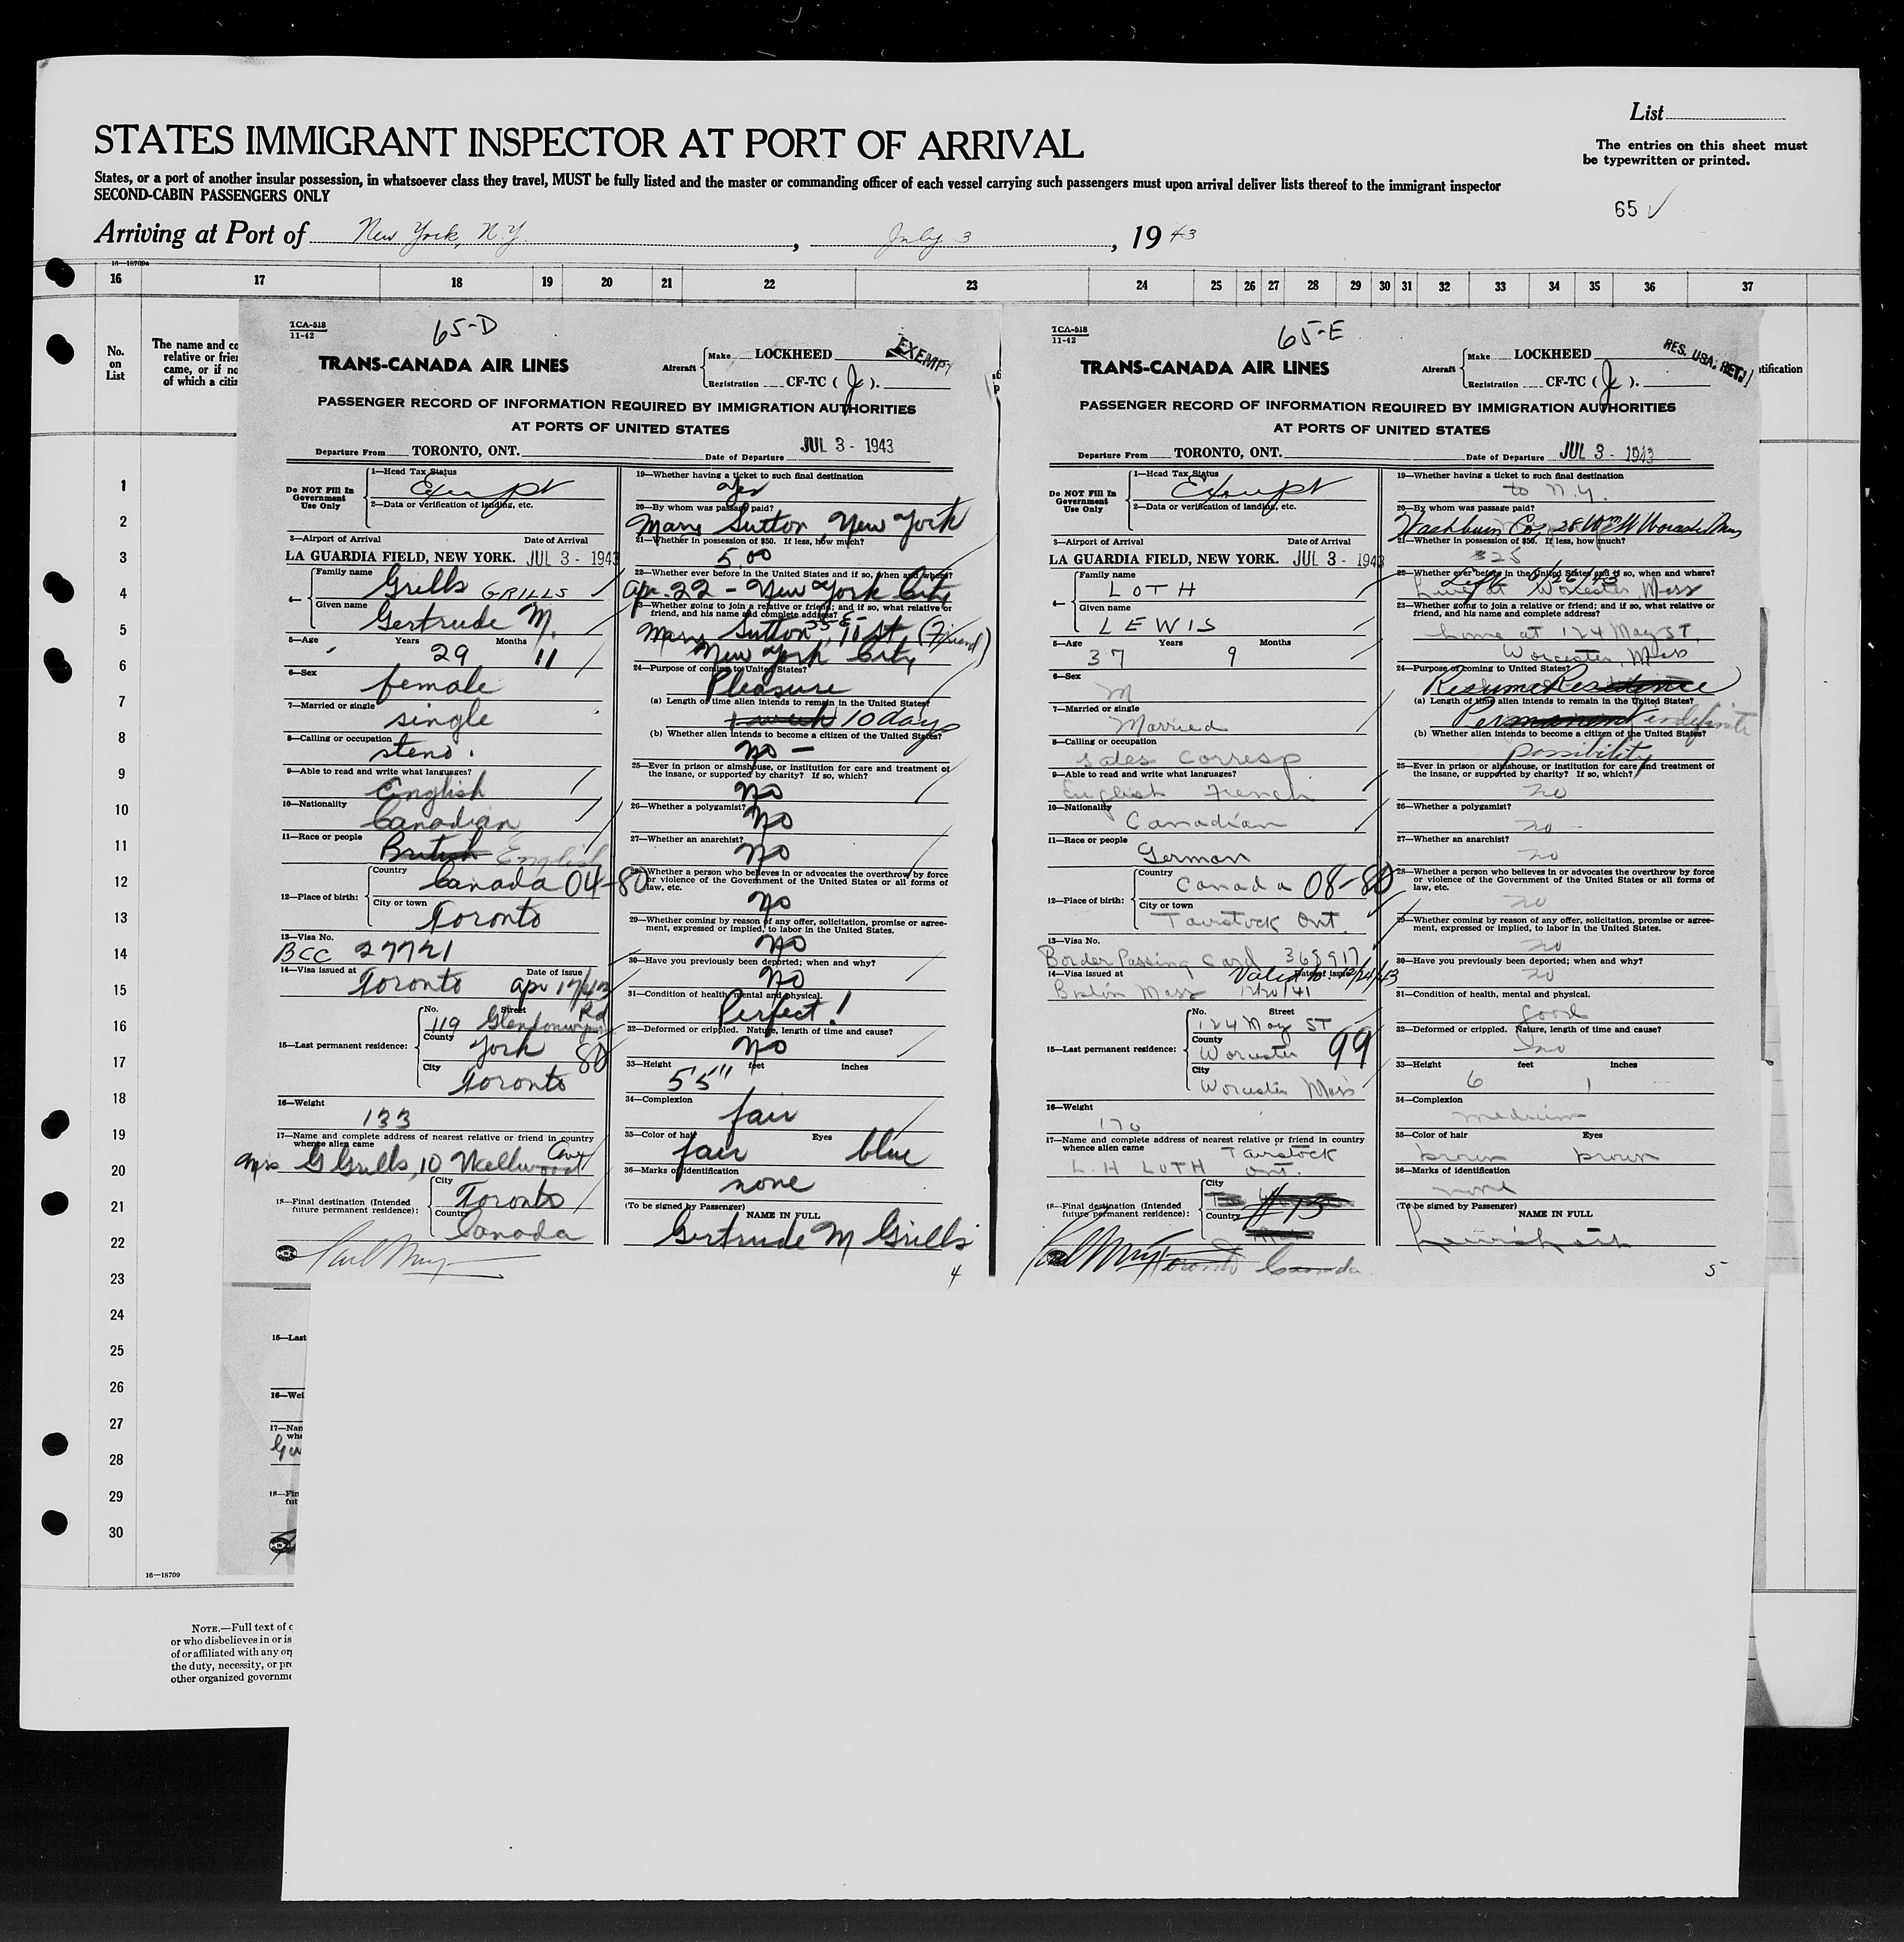 List
STATES IMMIGRANT INSPECTOR AT PORT OF ARRIVAL
The entries on this sheet must
be typewritten or printed.
States, or a port of another insular possession, in whatsoever class they travel, MUST be fully listed and the master or commanding officer of each vessel carrying such passengers must upon arrival deliver lists thereof to the immigrant inspector
SECOND-CABIN PASSENGERS ONLY
65 ✓
Arriving at Port of New York, N.Y. , July 3 , 19 43
16—18709a
16 17 18 19 20 21 22 23 24 25 26 27 28 29 30 31 32 33 34 35 36 37
No.
on
List
The name and co
relative or frie
came, or if no
of which a citiz
tification
1
2
3
4
5
6
7
8
9
10
11
12
13
14
15
16
17
18
19
20
21
22
23
24
25
26
27
28
29
30
TCA-518
11-42
65-D
TRANS-CANADA AIR LINES
Aircraft
Make LOCKHEED
Registration CF-TC ( J ).
EXEMPT
PASSENGER RECORD OF INFORMATION REQUIRED BY IMMIGRATION AUTHORITIES
AT PORTS OF UNITED STATES
Departure From TORONTO, ONT. Date of Departure JUL 3 - 1943
Do NOT Fill In
Government
Use Only
1—Head Tax Status
Exempt
2—Data or verification of landing, etc.
3—Airport of Arrival Date of Arrival
LA GUARDIA FIELD, NEW YORK. JUL 3 - 1943
4—
Family name
Grills GRILLS
Given name
Gertrude M.
5—Age Years Months
29 11
6—Sex
female
7—Married or single
single
8—Calling or occupation
steno.
9—Able to read and write what languages?
English
10—Nationality
Canadian
11—Race or people
British English
12—Place of birth:
Country
Canada 04-80
City or town
Toronto
13—Visa No.
BCC 27721
14—Visa issued at Date of issue
Toronto Apr 17/43
15—Last permanent residence:
No. Street
119 Rd
County
York 80
City
Toronto
16—Weight
133
17—Name and complete address of nearest relative or friend in country
whence alien came
Mrs G Grills, 10 Ave
18—Final destination (Intended
future permanent residence):
City
Toronto
Country
Canada
19—Whether having a ticket to such final destination
yes
20—By whom was passage paid?
Mary Sutton, New York
21—Whether in possession of $50. If less, how much?
5.00
22—Whether ever before in the United States and if so, when and where?
Apr. 22 - New York City
23—Whether going to join a relative or friend; and if so, what relative or
friend, and his name and complete address?
Mary Sutton, 55 E- 10 St (Friend)
New York City
24—Purpose of coming to United States?
Pleasure
(a) Length of time alien intends to remain in the United States?
1 week 10 days
(b) Whether alien intends to become a citizen of the United States?
no —
25—Ever in prison or almshouse, or institution for care and treatment of
the insane, or supported by charity? If so, which?
no
26—Whether a polygamist?
no
27—Whether an anarchist?
no
28—Whether a person who believes in or advocates the overthrow by force
or violence of the Government of the United States or all forms of
law, etc.
no
29—Whether coming by reason of any offer, solicitation, promise or agree-
ment, expressed or implied, to labor in the United States.
no
30—Have you previously been deported; when and why?
no
31—Condition of health, mental and physical.
Perfect!
32—Deformed or crippled. Nature, length of time and cause?
no
33—Height feet inches
5'5"
34—Complexion
fair
35—Color of hair Eyes
fair blue
36—Marks of identification
none
(To be signed by Passenger) NAME IN FULL
Gertrude M Grills
4
TCA-518
11-42
65-E
TRANS-CANADA AIR LINES
Aircraft
Make LOCKHEED
Registration CF-TC ( J ).
RES. USA. RET.
PASSENGER RECORD OF INFORMATION REQUIRED BY IMMIGRATION AUTHORITIES
AT PORTS OF UNITED STATES
Departure From TORONTO, ONT. Date of Departure JUL 3 - 1943
Do NOT Fill In
Government
Use Only
1—Head Tax Status
Exempt
2—Data or verification of landing, etc.
3—Airport of Arrival Date of Arrival
LA GUARDIA FIELD, NEW YORK. JUL 3 - 1943
4—
Family name
LOTH
Given name
LEWIS
5—Age Years Months
37 9
6—Sex
M
7—Married or single
Married
8—Calling or occupation
Sales Corresp
9—Able to read and write what languages?
English French
10—Nationality
Canadian
11—Race or people
German
12—Place of birth:
Country
Canada 08-80
City or town
Tavistock Ont.
13—Visa No.
Border Passing Card 365917
14—Visa issued at Date of issue
Valid to 12/21/43
Boston Mass 12/20/41
15—Last permanent residence:
No. Street
124 May ST
County
Worcester 99
City
Worcester Mass
16—Weight
170
17—Name and complete address of nearest relative or friend in country
whence alien came Tavistock
L. H LOTH Ont.
18—Final destination (Intended
future permanent residence):
City
Country
#15
Toronto Canada
19—Whether having a ticket to such final destination
to N.Y.
20—By whom was passage paid?
Washburn Co, 28 Worcester Mass
21—Whether in possession of $50. If less, how much?
$25
22—Whether ever before in the United States and if so, when and where?
Left 6/26/43
Lives at Worcester Mass
23—Whether going to join a relative or friend; and if so, what relative or
friend, and his name and complete address?
home at 124 May ST.
Worcester, Mass
24—Purpose of coming to United States?
Resume Residence
(a) Length of time alien intends to remain in the United States?
Permanent indefinite
(b) Whether alien intends to become a citizen of the United States?
possibility
25—Ever in prison or almshouse, or institution for care and treatment of
the insane, or supported by charity? If so, which?
no
26—Whether a polygamist?
no
27—Whether an anarchist?
no
28—Whether a person who believes in or advocates the overthrow by force
or violence of the Government of the United States or all forms of
law, etc.
no
29—Whether coming by reason of any offer, solicitation, promise or agree-
ment, expressed or implied, to labor in the United States.
no
30—Have you previously been deported; when and why?
no
31—Condition of health, mental and physical.
Good
32—Deformed or crippled. Nature, length of time and cause?
no
33—Height feet inches
6 1
34—Complexion
medium
35—Color of hair Eyes
brown brown
36—Marks of identification
none
(To be signed by Passenger) NAME IN FULL
Lewis Loth
5
15—Last
16—Wei
17—Nan
whe
18—Fin
fut
16—18709
NOTE.—Full text of q
or who disbelieves in or is
of or affiliated with any org
the duty, necessity, or pro
other organized governme